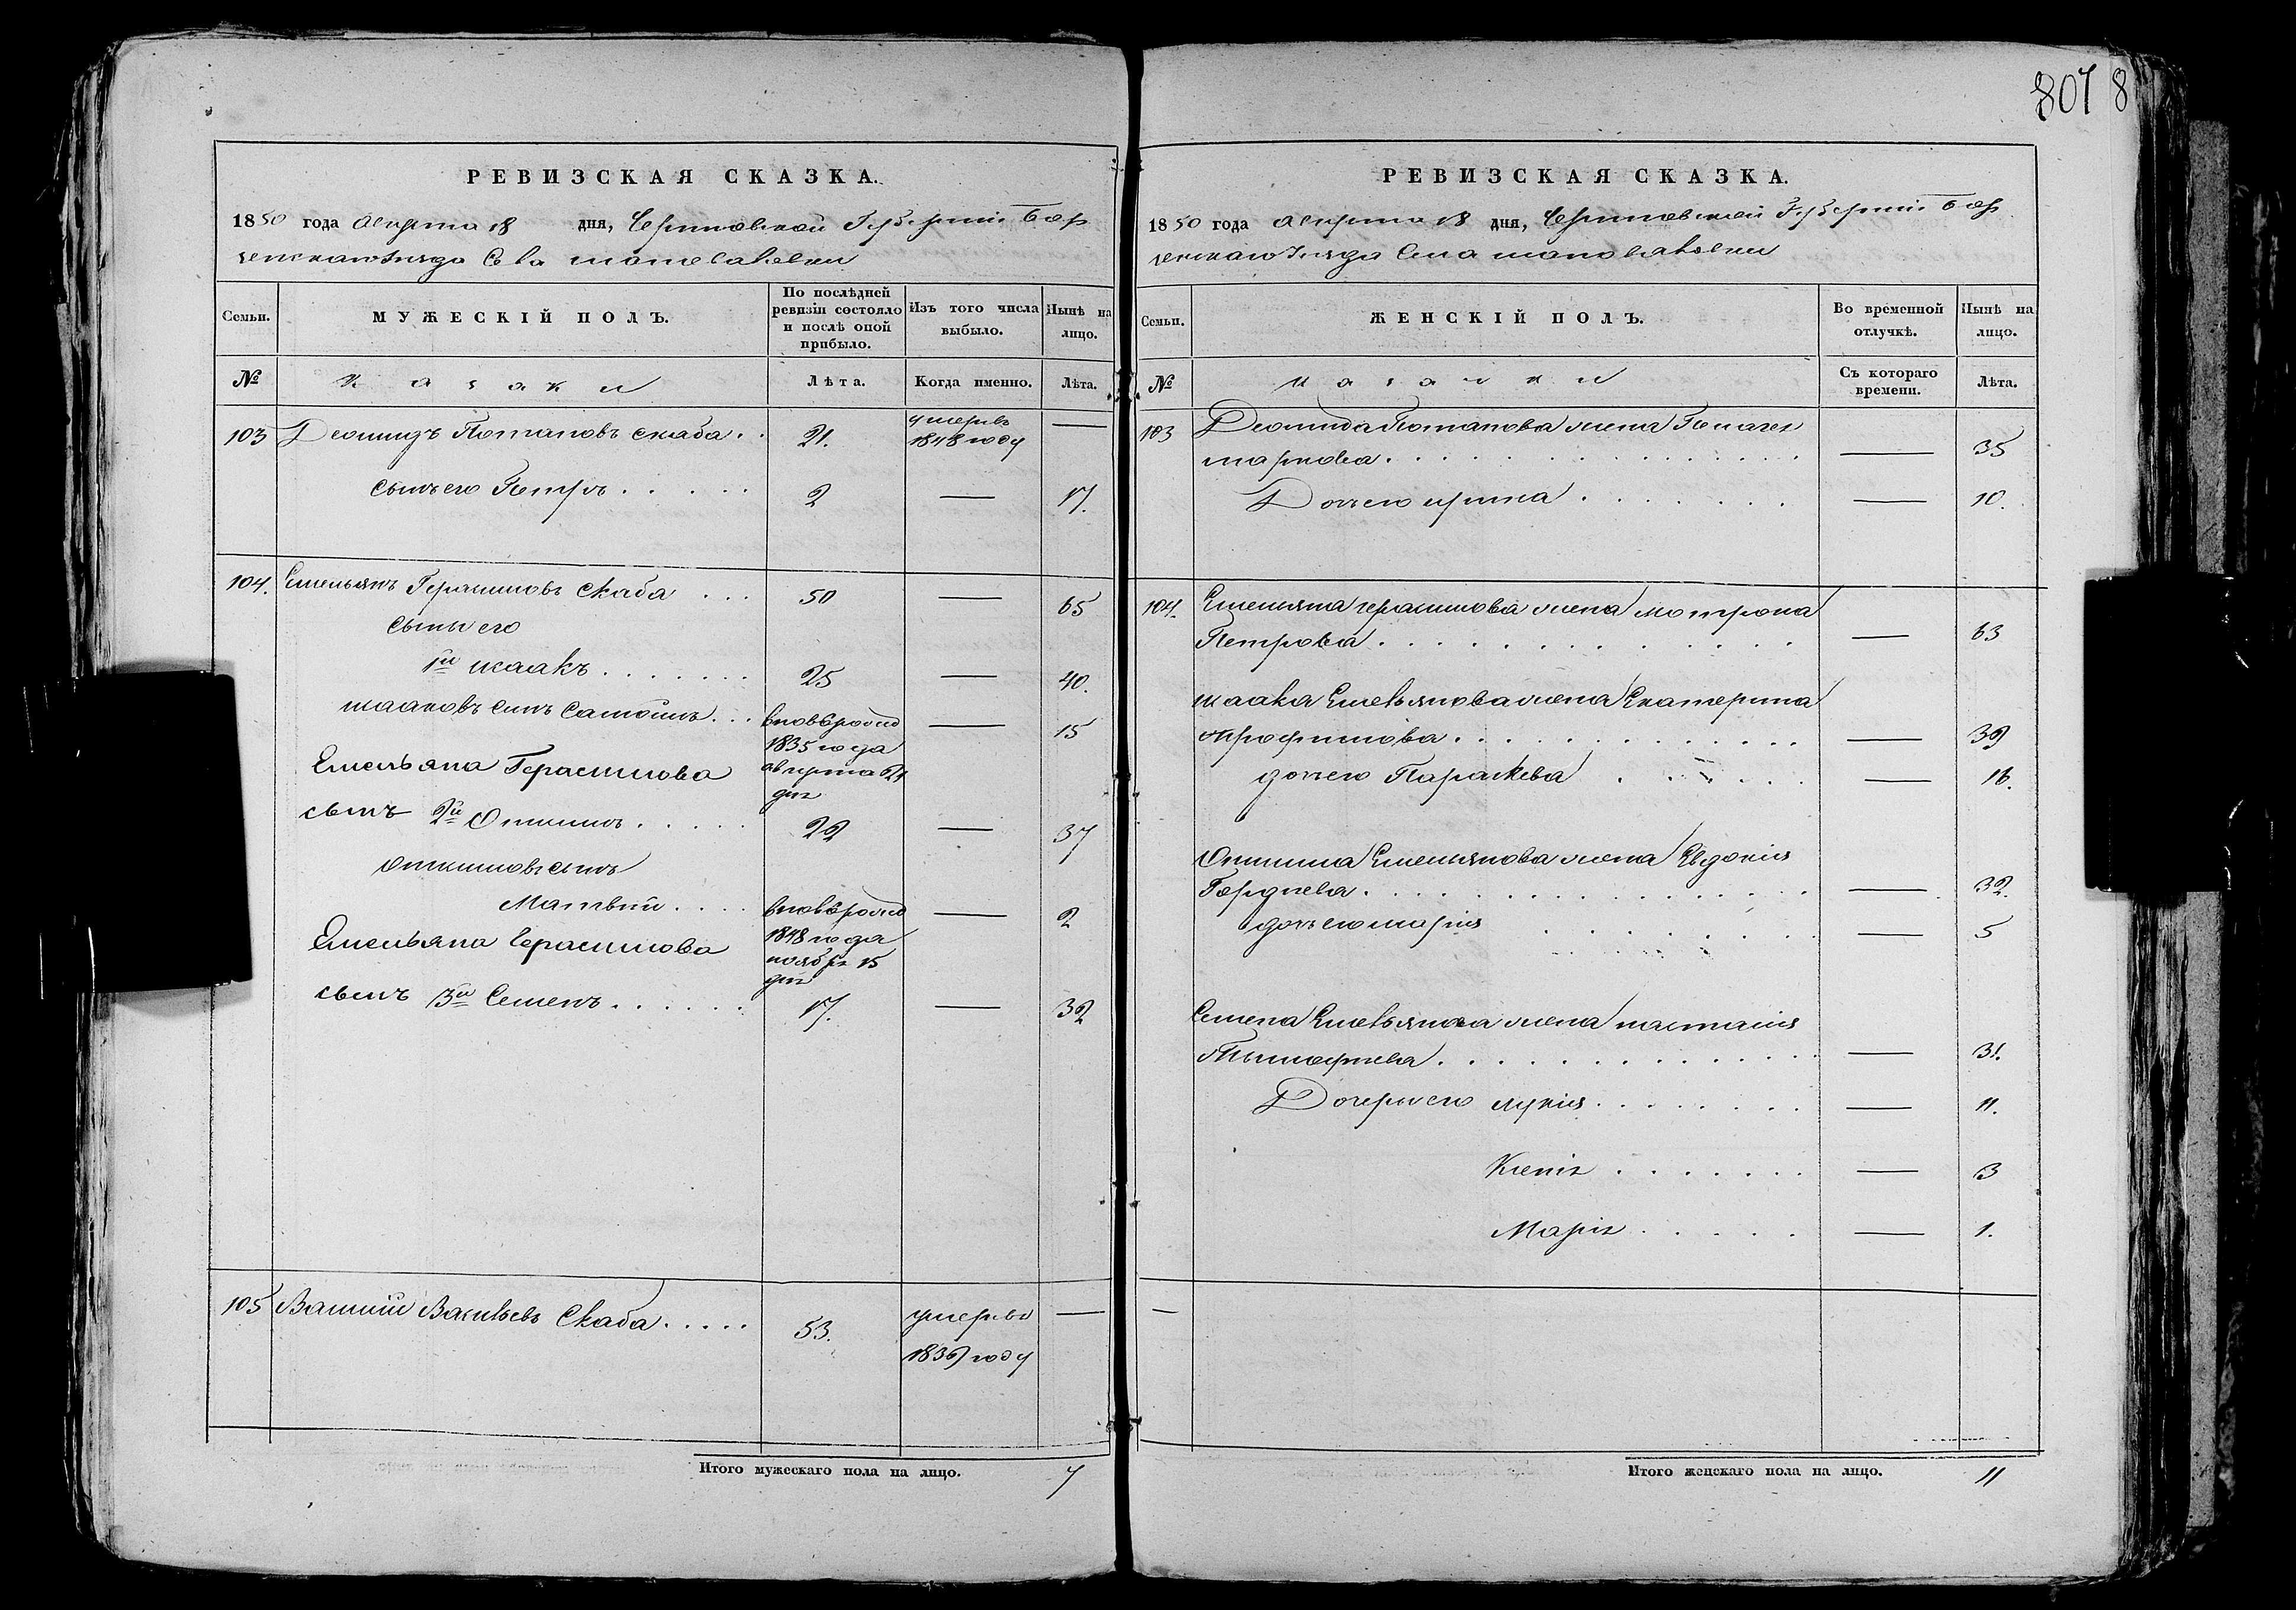 807 8
РЕВИЗСКАЯ СКАЗКА.
1850 года августа 18 дня, Черниговской Губерніи Бор
зенскаго Уезда Села
Семьи.
МУЖЕСКІЙ ПОЛЪ.
По послѣдней ревизіи состояло и послѣ оной прибыло.
Изъ того числа выбыло.
Нынѣ на лицо.
№
казаки
Лѣта.
Когда именно.
Лѣта.
103 Леонидъ Потаповъ Скаба . . 21. умеръ въ 1848 году —
сынъ его Петръ . . . . . 2 — 17.
104. Емельянъ Герасимовъ Скаба . . . 50 — 65
сыны его
1й Исаакъ . . . . . . . 25 — 40.
Исааковъ сынъ Самойлъ . . . вновь рожд — 15
1835 года
августа 24
дня
Емельяна Герасимова
сынъ 2й Онисимъ . . . . . 22 — 37
Онисимовъ сынъ
Матвей . . . . вновь рожд — 2
1848 года
ноября 15
дня
Емельяна Герасимова
сынъ 3й Семенъ . . . . . . 17. — 32
105 Василій Васильевъ Скаба . . . . . 53. умеръ въ —
1836 году
Итого мужескаго пола на лицо. 7
РЕВИЗСКАЯ СКАЗКА.
1850 года августа 18 дня, Черниговской Губерніи Бор
зенскаго Уезда Села
Семьи.
ЖЕНСКІЙ ПОЛЪ.
Во временной отлучкѣ.
Нынѣ на лицо.
№
казачки
Съ котораго времени.
Лѣта.
103 Леонида Потапова жена Пелагея
маркова . . . . . . . . . . . . . — 35
Дочь его ирина . . . . . . . — 10.
104. Емельяна герасимова жена мотрона
Петрова . . . . . . . . . . . . . — 63
Исаака Емельянова жена Екатерина
Трофимова . . . . . . . . . . . . — 39
дочь его Параскева . . . . . — 16.
Онисима Емельянова жена Евдокия
Гордиева . . . . . . . . . . . . . — 32.
дочь его мария . . . . . . . — 5
Семена Емельянова жена настасия
Тимофиева . . . . . . . . . . . . — 31.
Дочери его лукия . . . . . . . . — 11.
Ксения . . . . . . . — 3
Мария . . . . . — 1.
—
Итого женскаго пола на лицо. 11